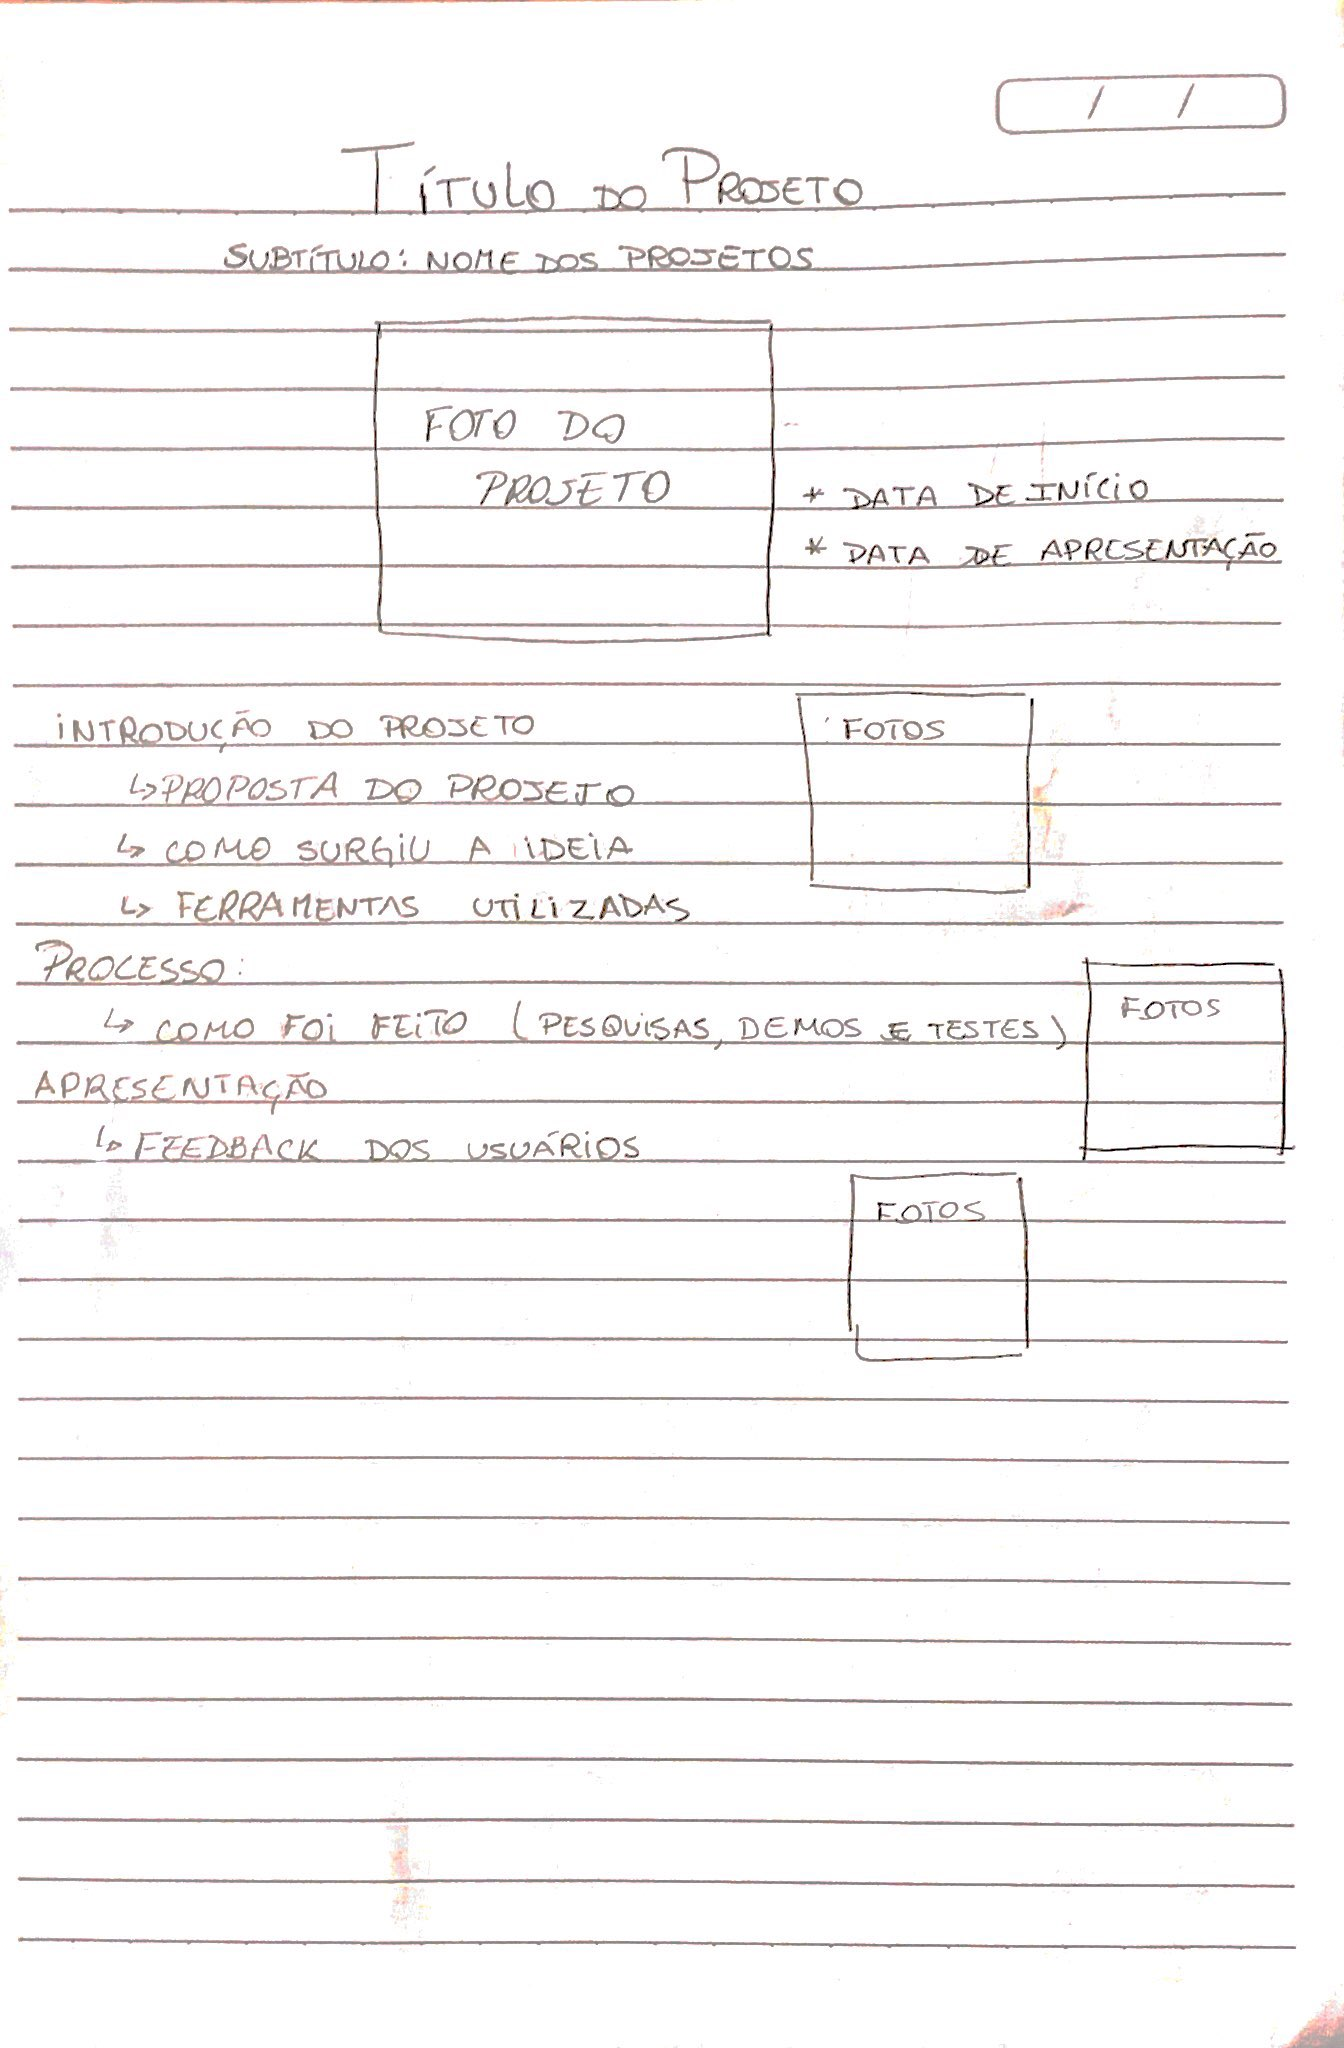 / /
TÍTULO DO PROJETO
SUBTÍTULO: NOME DOS PROJETOS
FOTO DO
PROJETO
* DATA DE INÍCIO
* DATA DE APRESENTAÇÃO
INTRODUÇÃO DO PROJETO
FOTOS
↳ PROPOSTA DO PROJETO
↳ COMO SURGIU A IDEIA
↳ FERRAMENTAS UTILIZADAS
PROCESSO:
FOTOS
↳ COMO FOI FEITO (PESQUISAS, DEMOS E TESTES)
APRESENTAÇÃO
↳ FEEDBACK DOS USUÁRIOS
FOTOS